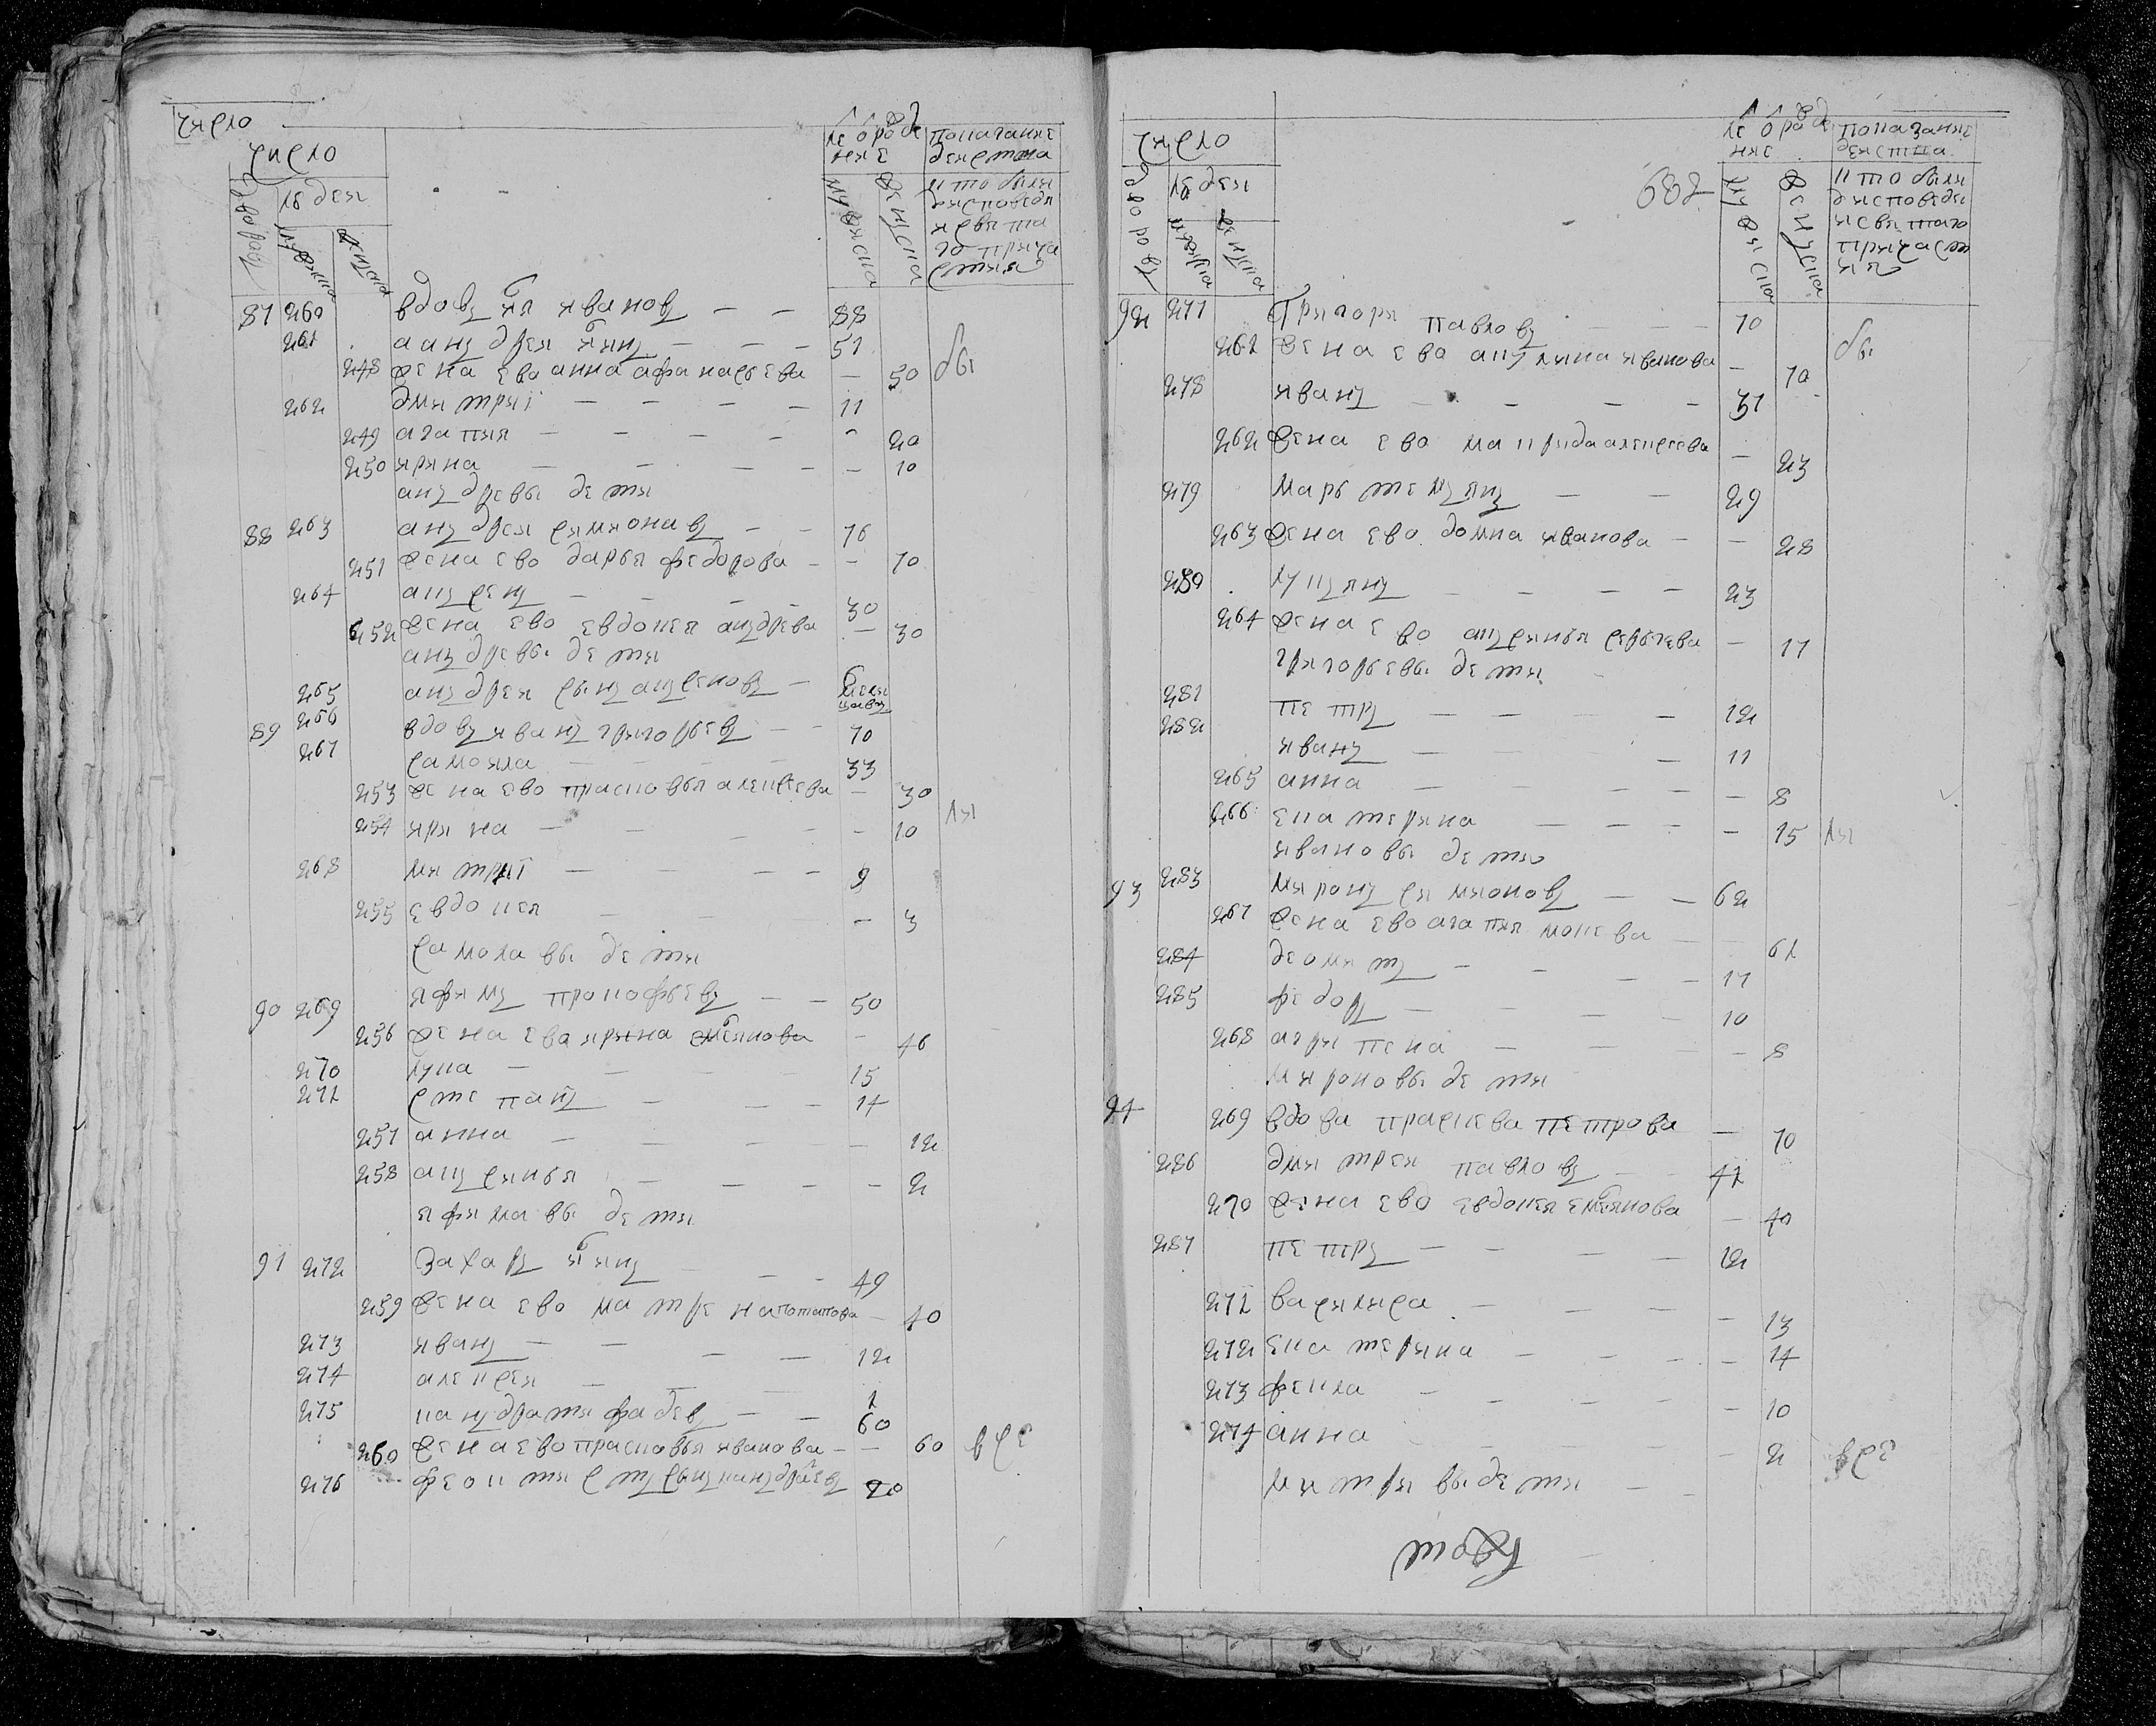 число
число
дворовъ
людеи
мужеска
женска
лѣ отъ рожде
ния
мужеска
женска
показание
действа
кто были
у исповеди
и свята
го прича
стия
87 260 вдовъ илья ивановъ — — 88
261 андреи ильинъ — — 51
248 жена ево анна афанасьева — 50 бы
262 дмитрии — — — — 11
249 агапия — — — — 20
250 ирина — — — — 10
андреевы дети
88 263 андреи симионавъ — — 76
251 жена ево дарья федорова — — 70
264 аксенъ — — — — 30
252 жена ево евдокея андрева — 30
андревы дети
265 андреи сынъ аксеновъ —
89 266 вдовъ иванъ григорьевъ — — 70
267 самоила — — — 33
253 жена ево прасковья алексева — 30
254 ирина — — — — 10 ли
268 митрии — — — — 9
255 евдокея — — — 3
самолавы дети
90 269 яфимъ прокофьевъ — — 50
256 жена ева ирина емельянова — 46
270 лука — — — — 15
271 степанъ — — — 14
257 анна — — — — 12
258 аксинья — — — — 2
яфимавы дети
91 272 захаръ ильинъ — — — 49
259 жена ево матрена потапова — 40
273 иванъ — — — — 12
274 алексеи — — — 1
275 панкдрати фадевъ — — 60
260 жена ево прасковья иванова — — 60 все
276 феоктистъ сынъ панкдратьевъ 20
число
дворовъ
людеи
мужеска
женска
682
лѣ отъ рожде
ние
мужеска
женска
показание
действа
кто были
у исповеди
и святаго
причаст
ия
92 277 григори павловъ — — — 70
261 жена ево акулина иванова — 70 бы
278 иванъ — — — — 31
262 жена ево макрида алексеева — 23
279 мартемъянъ — — 29
263 жена ево домна иванова — — 28
280 лукъянъ — — — — 23
264 жена ево аксинья сергеева — 17
григорьевы дети
281 петръ — — — — 12
282 иванъ — — — — 11
265 анна — — — — — 8
266 екатерина — — — — 15 ли
ивановы дети
93 283 миронъ симионовъ — — 62
267 жена ево агапия мокева — — 61
284 деомитъ — — — — 17
285 федоръ — — — — 10
268 агрипена — — — — 8
мироновы дети
94 269 вдова праскева петрова — 70
286 дмитреи павловъ — — 41
270 жена ево евдокея емельянова — 40
287 петръ — — — — 12
271 василиса — — — — 13
272 екатерина — — — — 14
273 фекла — — — — 10
274 анна — — — — 2 все
митривы дети — —